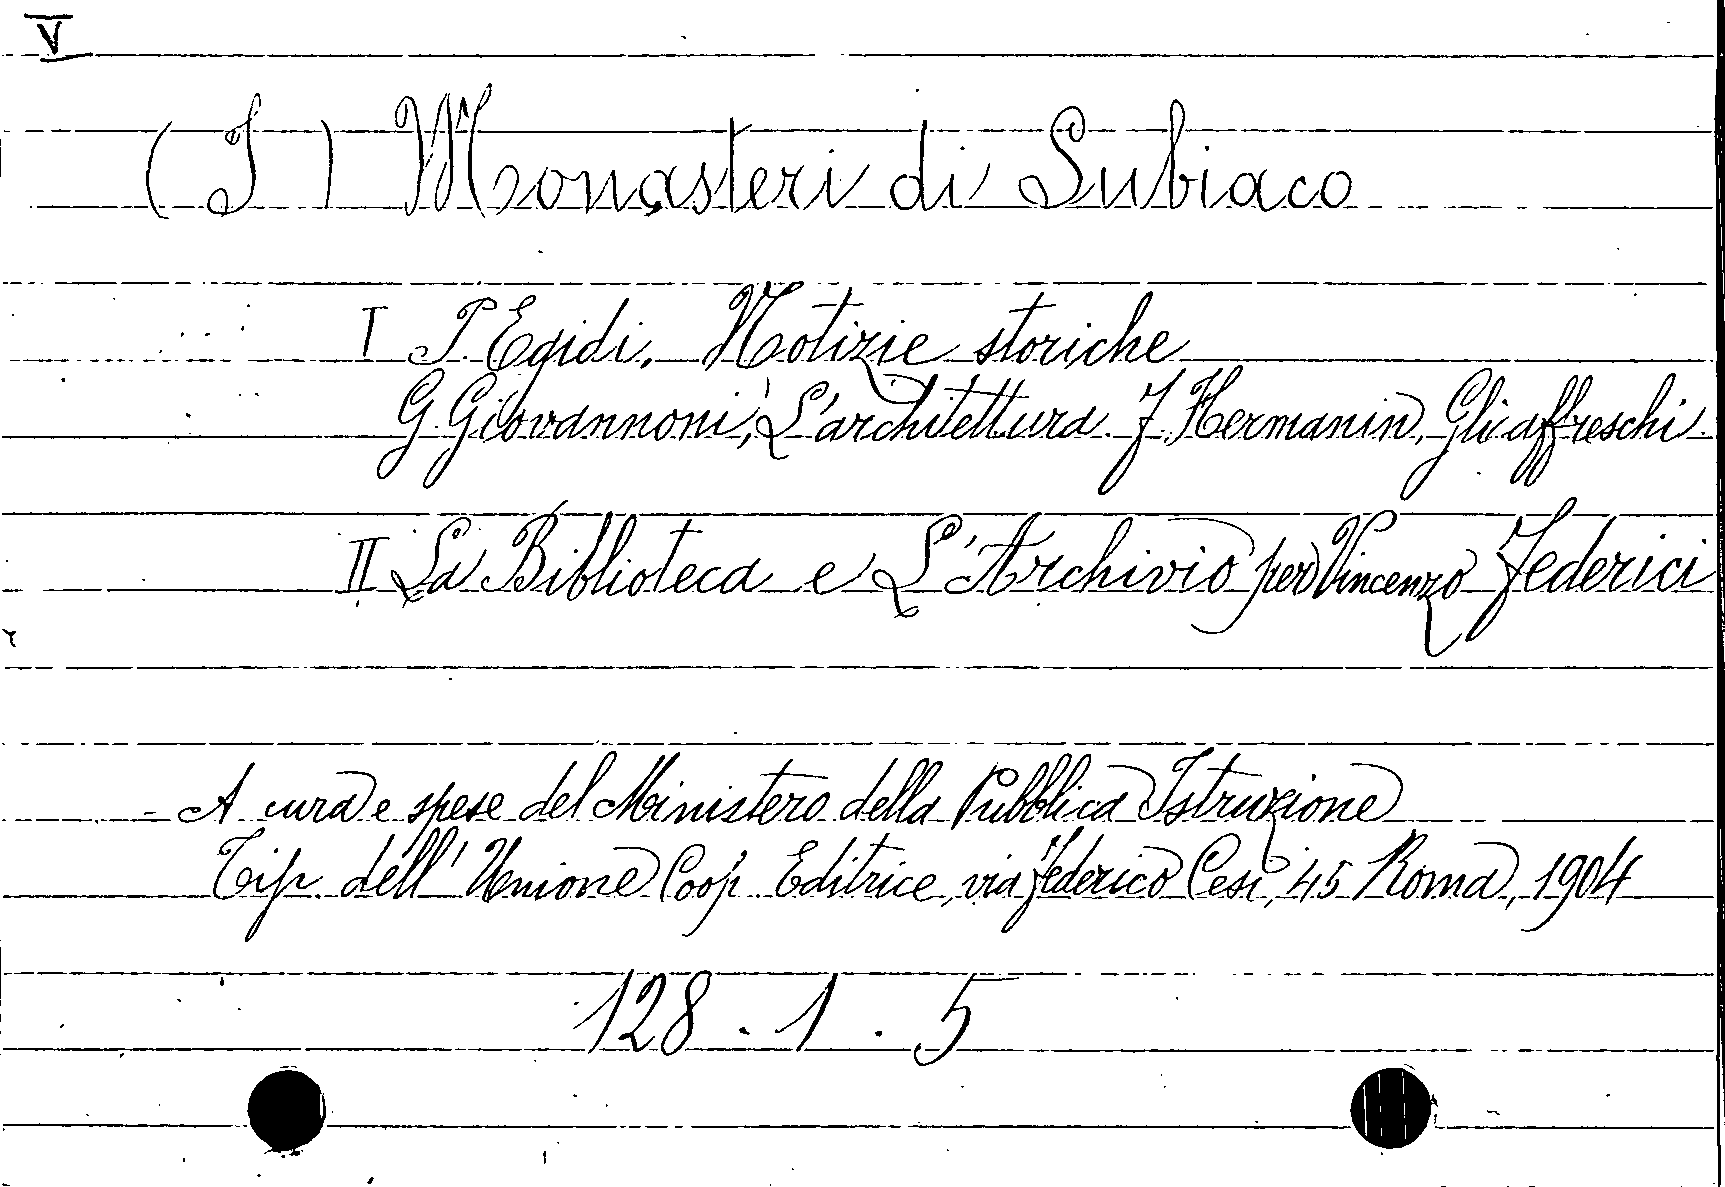 V
( I ) Monasteri di Subiaco
I P. Egidi. Notizie storiche
G. Giovannoni, L'architettura. F. Hermanin, Gli affreschi.
II La Biblioteca e L'Archivio per Vincenzo Federici
- A cura e spese del Ministero della Pubblica Istruzione
Tip. dell' Unione Coop. Editrice, via Federico Cesi, 45 Roma, 1904
128 . 1 . 5